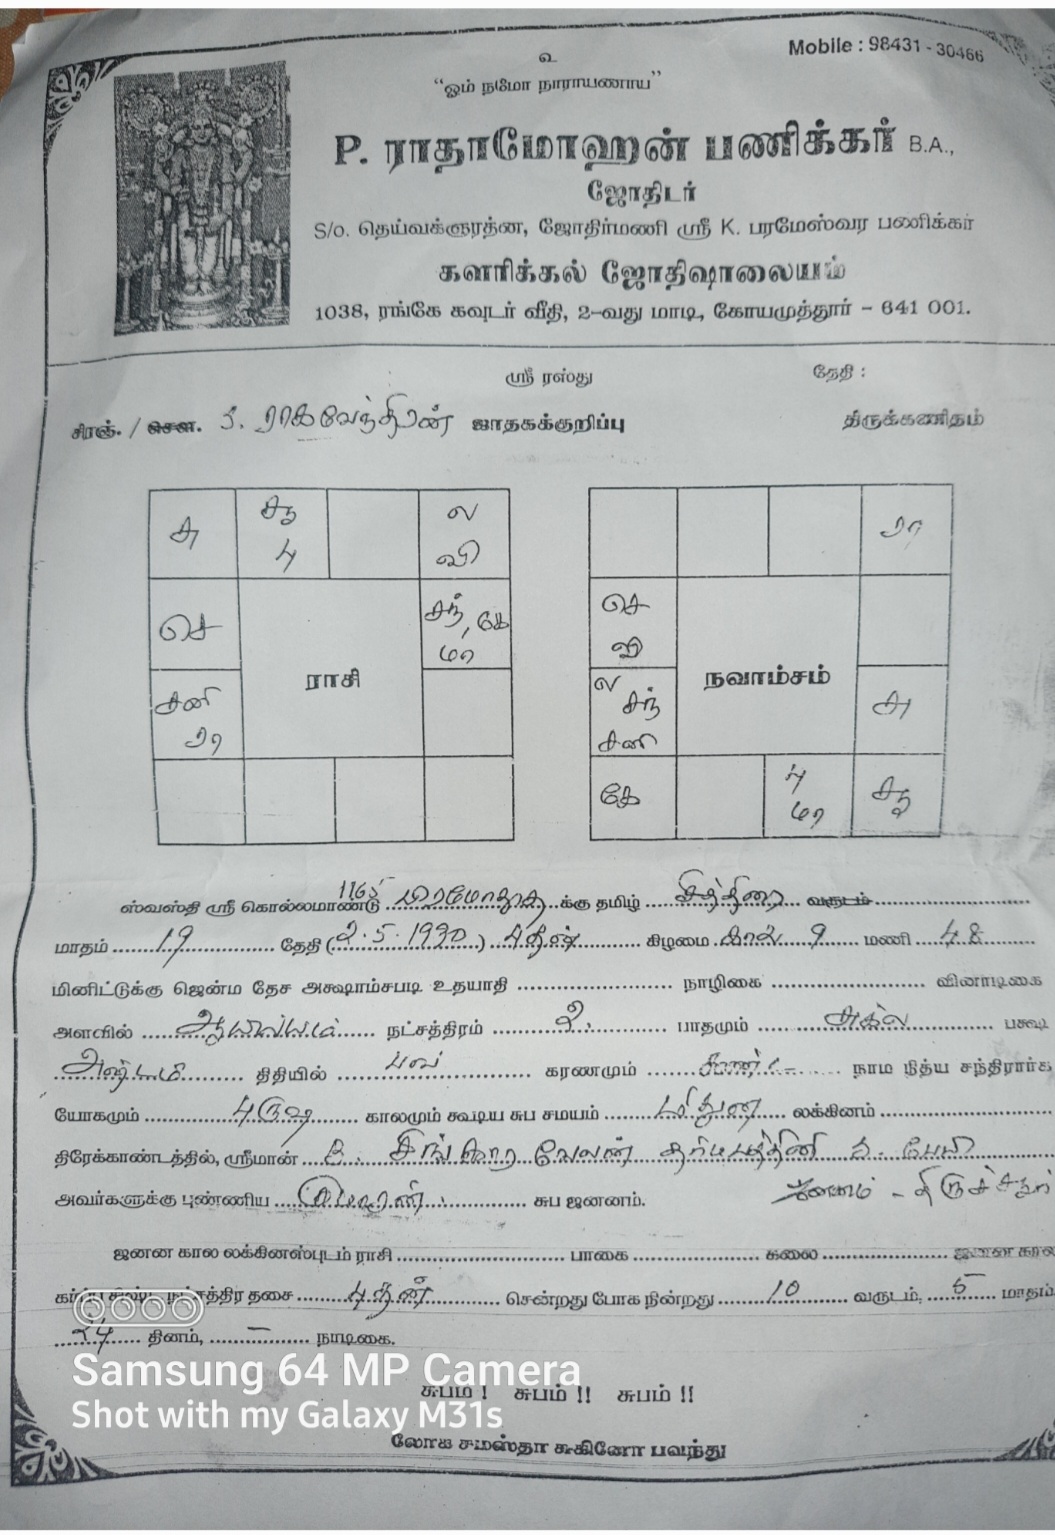 Mobile : 98431 - 30466
உ
"ஓம் நமோ நாராயணாய"
P. ராதாமோஹன் பணிக்கர் B.A.,
ஜோதிடர்
S/o. தெய்வக்ஞரத்ன, ஜோதிர்மணி ஸ்ரீ K. பரமேஸ்வர பணிக்கர்
களரிக்கல் ஜோதிஷாலையம்
1038, ரங்கே கவுடர் வீதி, 2-வது மாடி, கோயமுத்தூர் - 641 001.
ஸ்ரீ ரஸ்து தேதி :
சிரஞ். / சௌ. ராகவேந்திரன் ஜாதகக்குறிப்பு திருக்கணிதம்
சு சூ பு ல வி
செ சந், கே மா
ராசி
சனி ரா
ரா
செ வி
நவாம்சம்
ல சந் சனி சு
கே பு மா சூ
ஸ்வஸ்தி ஸ்ரீ கொல்லமாண்டு 1165 பிரமோதூத க்கு தமிழ் சித்திரை வருடம்
மாதம் 19 தேதி (2.5.1990) புதன் கிழமை காலை 9 மணி 48
மினிட்டுக்கு ஜென்ம தேச அக்ஷாம்சபடி உதயாதி நாழிகை வினாடிகை
அளவில் ஆயில்யம் நட்சத்திரம் 2 பாதமும் பக்ஷ
அஷ்டமி திதியில் பவ கரணமும் நாம நித்ய சந்திரார்க
யோகமும் புருஷ காலமும் கூடிய சுப சமயம் மிதுன லக்கினம்
திரேக்காண்டத்தில், ஸ்ரீமான் சிங்கார வேலன் தர்மபத்தினி
அவர்களுக்கு புண்ணிய சுப ஜனனம். ஜனனம் -
ஜனன கால லக்கினஸ்புடம் ராசி பாகை கலை ஜனன கால
நட்சத்திர தசை புதன் சென்றது போக நின்றது 10 வருடம், 5 மாதம்
24 தினம், – நாடிகை.
Samsung 64 MP Camera
Shot with my Galaxy M31s
சுபம் ! சுபம் !! சுபம் !!
லோக சமஸ்தா சுகினோ பவந்து